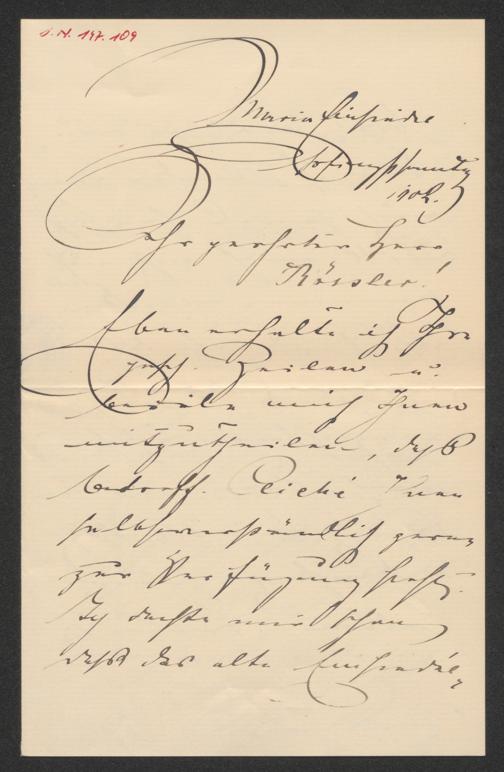 I. N. 147.109
Maria Einsiedel
1902.
Sehr geehrter Herr
Rössler!
Eben erhalte ich Ihre
gesch. Zeilen u.
beeile mich Ihnen
mitzutheilen, daß
betreff. Cliché Ihnen
selbstverständlich gerne
zur Verfügung steht.
Ich dachte mir schon
daß das alte Einsiedel-